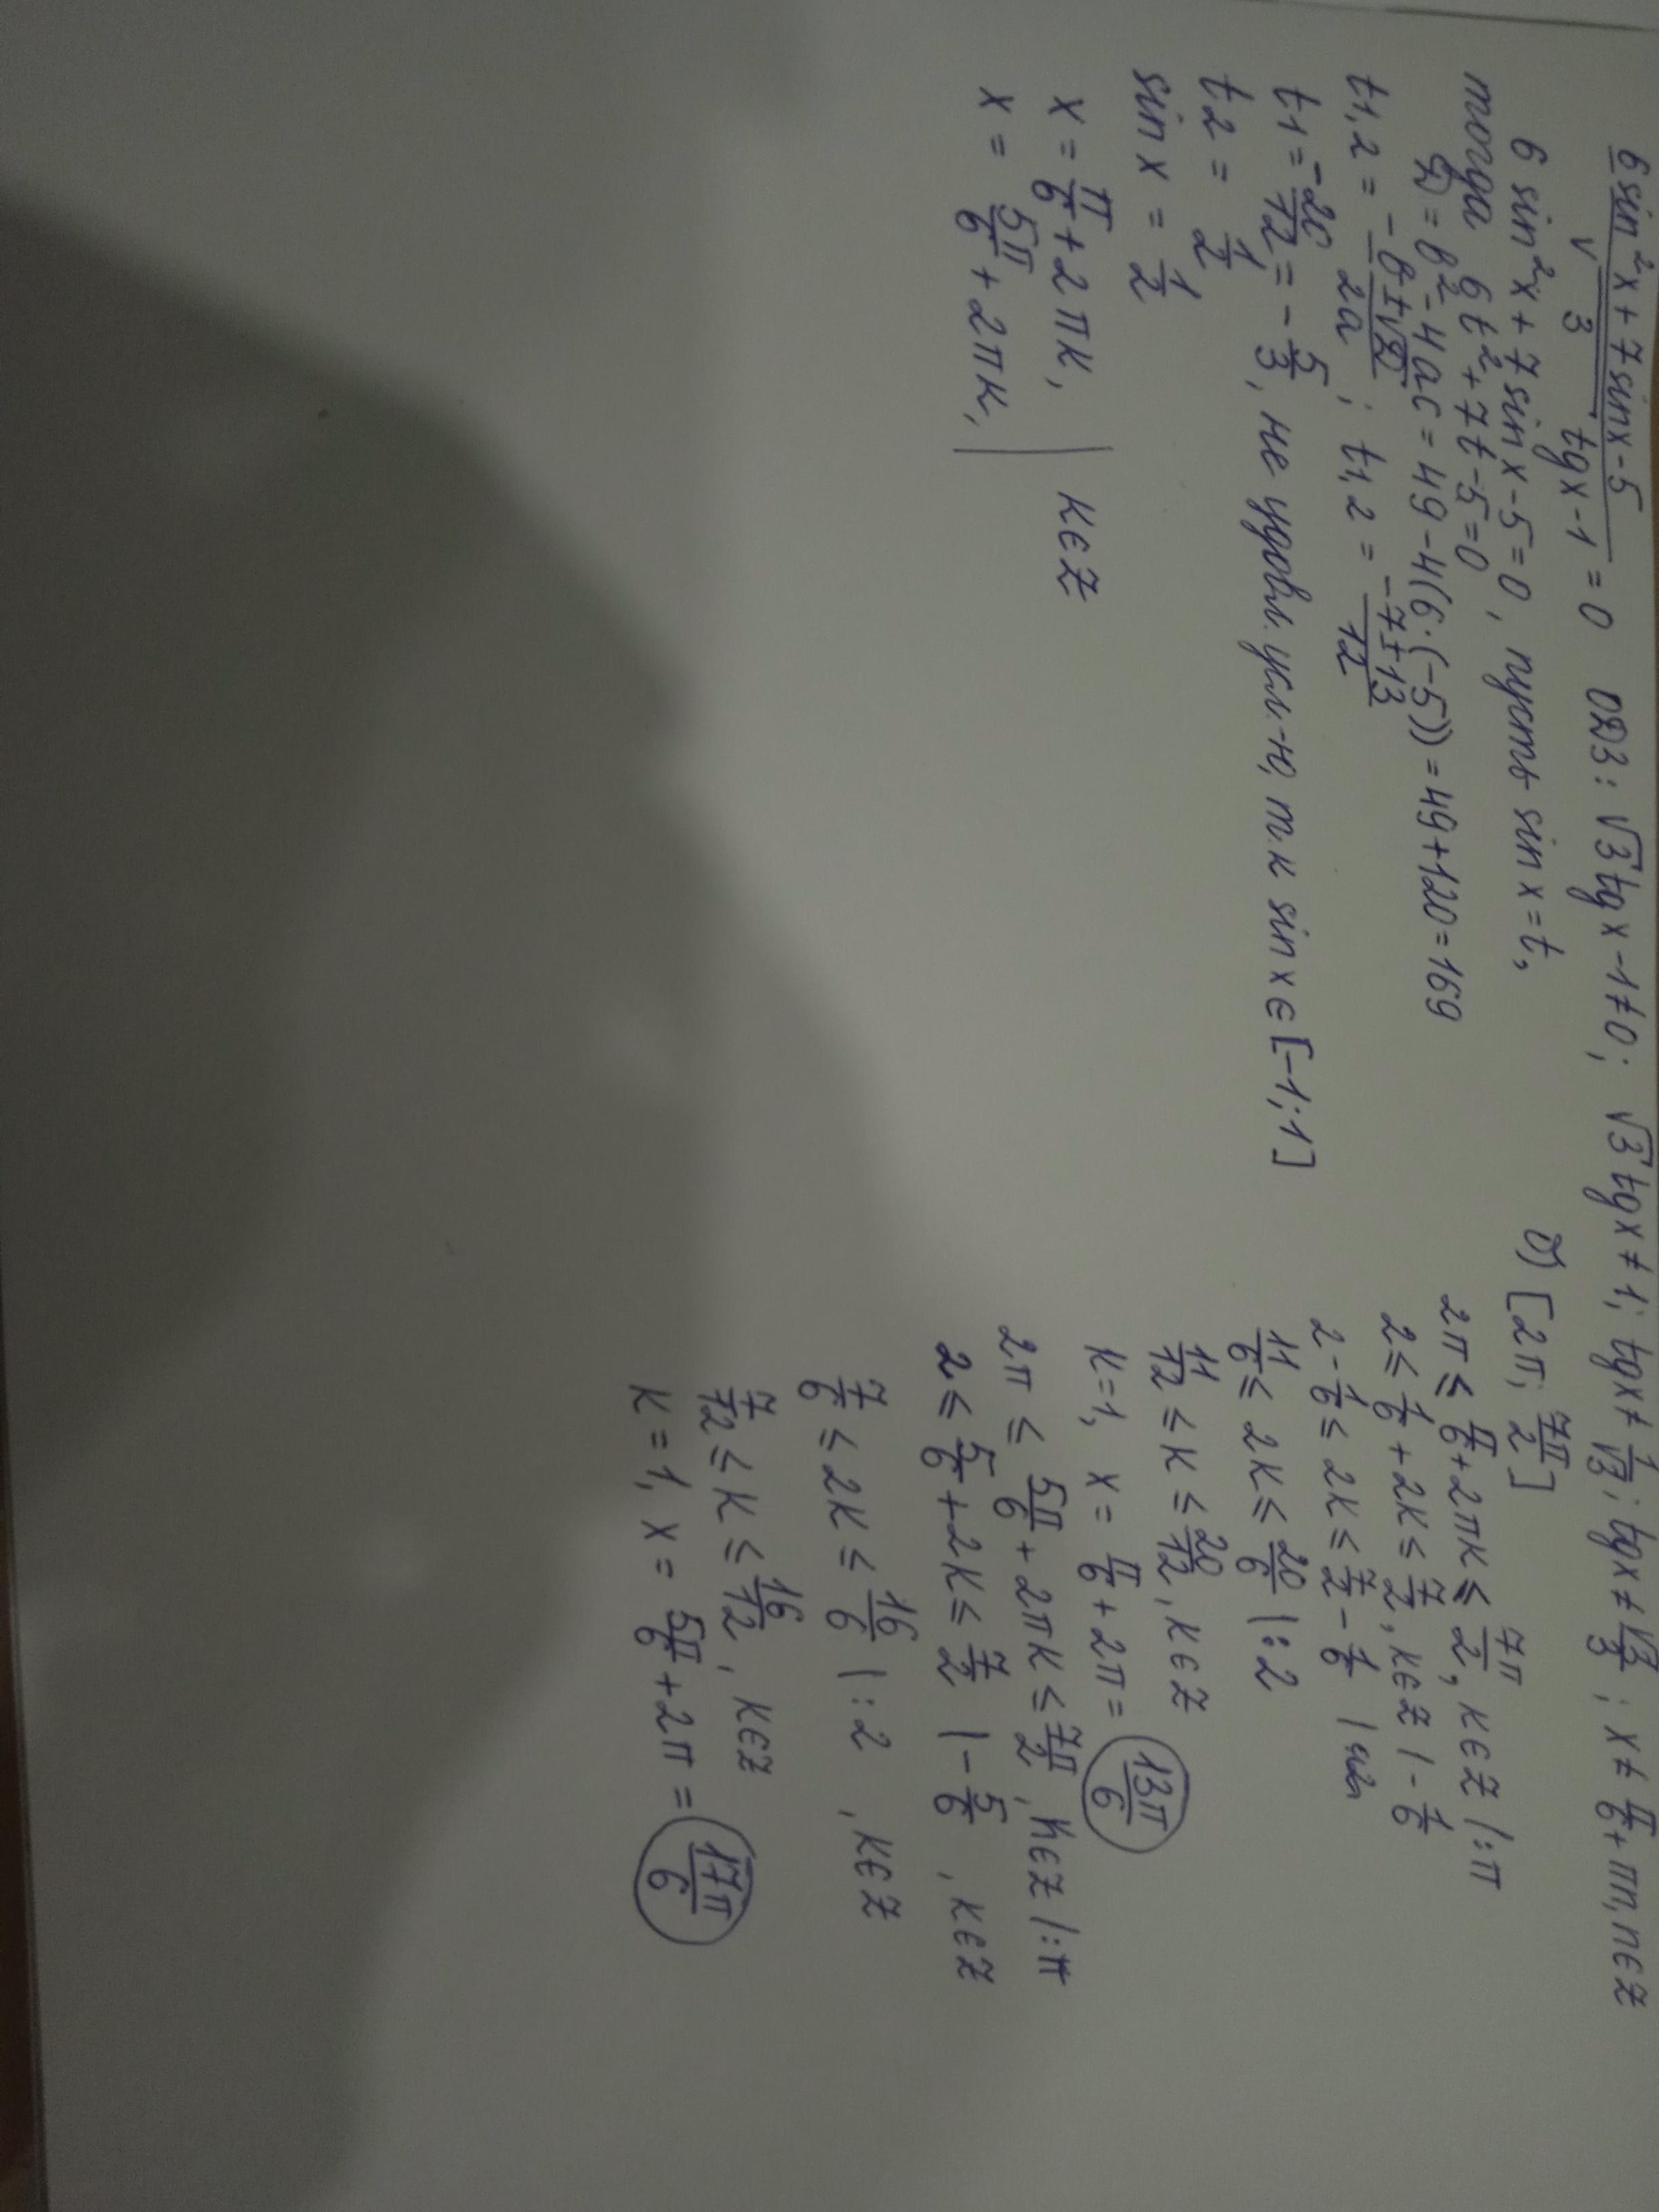 6 sin²x + 7 sin x - 5
√3 tg x - 1 = 0   ОДЗ: √3 tg x - 1 ≠ 0; √3 tg x ≠ 1; tg x ≠ 1/√3; tg x ≠ √3/3; x ≠ π/6 + πn, n ∈ Z
6 sin²x + 7 sin x - 5 = 0, пусть sin x = t,
тогда 6t² + 7t - 5 = 0
D = b² - 4ac = 49 - 4(6·(-5)) = 49 + 120 = 169
t1,2 = (-b ± √D)/2a ; t1,2 = (-7 ± 13)/12
t1 = -20/12 = -5/3, не удовл. усл-ю, т.к sin x ∈ [-1; 1]
t2 = 1/2
sin x = 1/2
x = π/6 + 2πк,
x = 5π/6 + 2πк, | к ∈ Z
б) [2π; 7π/2]
2π ≤ π/6 + 2πк ≤ 7π/2, к ∈ Z |:π
2 ≤ 1/6 + 2к ≤ 7/2, к ∈ Z | - 1/6
2 - 1/6 ≤ 2к ≤ 7/2 - 1/6
11/6 ≤ 2к ≤ 20/6 |:2
11/12 ≤ к ≤ 20/12, к ∈ Z
к = 1, x = π/6 + 2π = 13π/6
2π ≤ 5π/6 + 2πк ≤ 7π/2, к ∈ Z |:π
2 ≤ 5/6 + 2к ≤ 7/2 | - 5/6, к ∈ Z
7/6 ≤ 2к ≤ 16/6 |:2, к ∈ Z
7/12 ≤ к ≤ 16/12, к ∈ Z
к = 1, x = 5π/6 + 2π = 17π/6